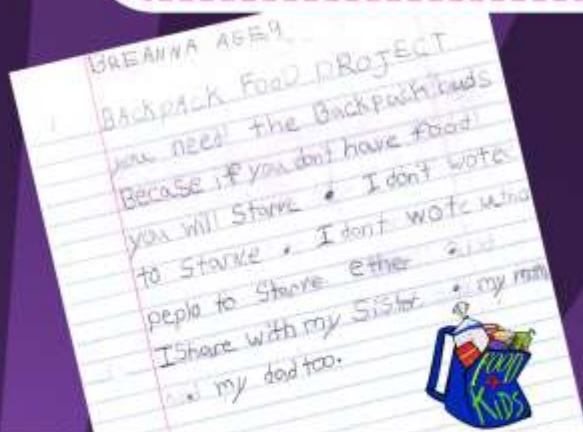 BREANNA AGE 9
BACKPACK FOOD PROJECT
you need the Backpack buds
Becase if you dont have food
you will Starve . I don't wote
to Starve . I don't wote
peplo to Starve ether .
I Share with my Sister .  my
my dad too.
FOOD
4
KIDS